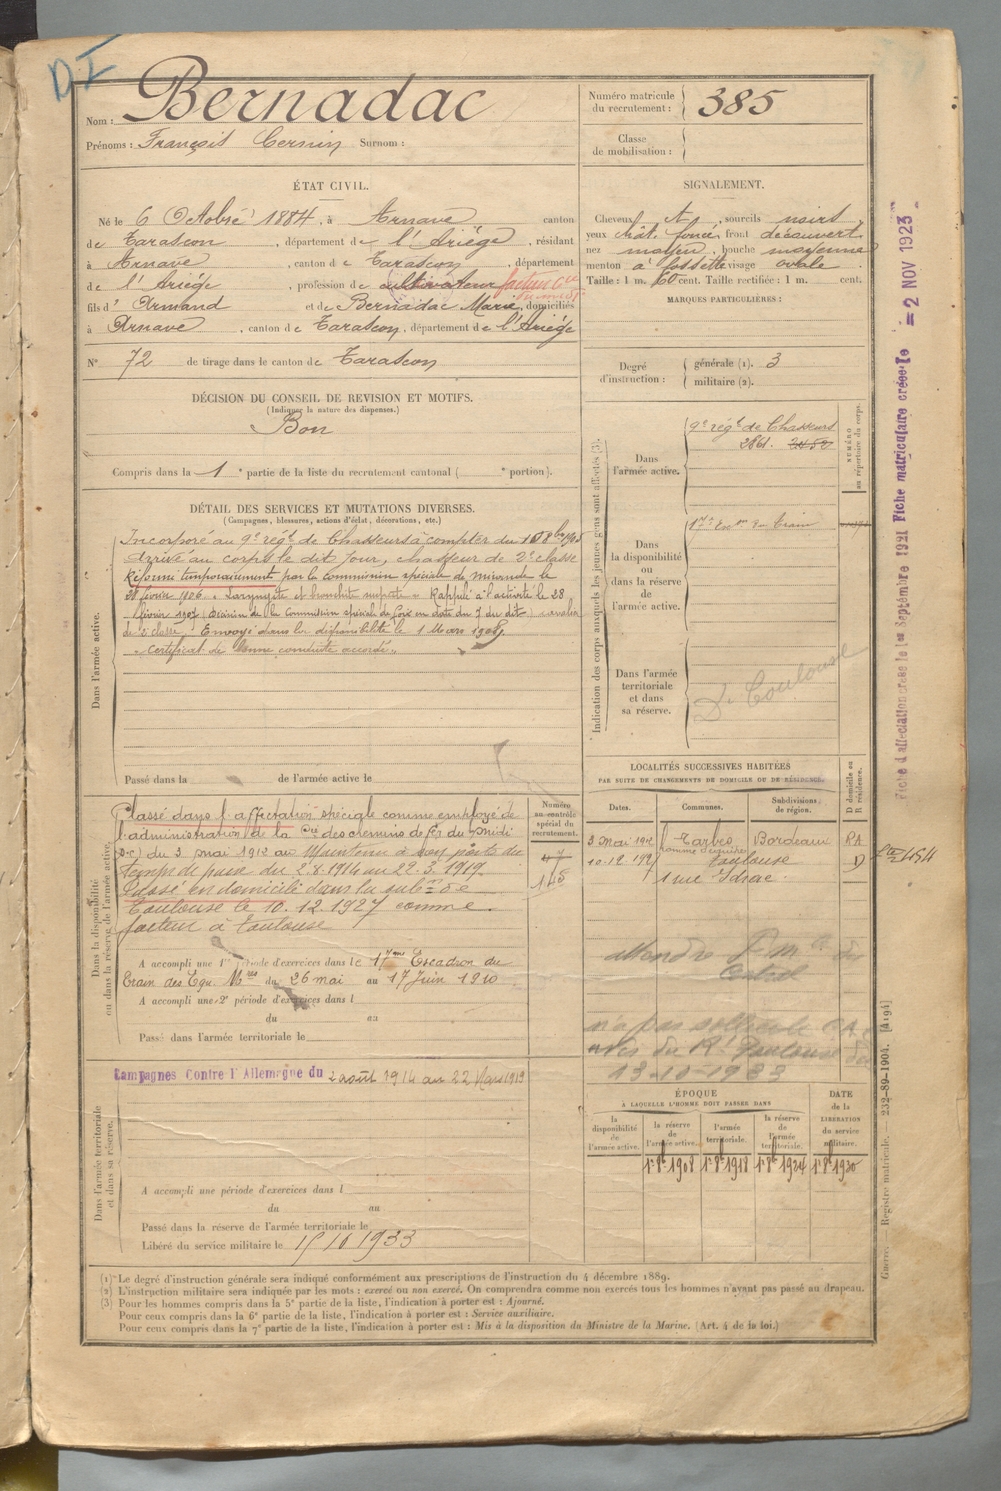 D.I
Nom : Bernadac
Prénoms : François Cernin Surnom :
Numéro matricule du recrutement : 385
Classe de mobilisation :
ÉTAT CIVIL.
Né le 6 Octobre 1884, à Arnave canton
de Tarascon, département de l'Ariège, résidant
à Arnave, canton de Tarascon, département
de l'Ariège, profession de cultivateur facteur Cie
du midi
fils d'Armand et de Bernadac Marie, domiciliés
à Arnave, canton de Tarascon, département de l'Ariège
N° 72 de tirage dans le canton de Tarascon
SIGNALEMENT.
Cheveux et, sourcils noirs
yeux chât. foncé, front découvert
nez moyen, bouche moyenne
menton à fossette visage ovale
Taille : 1 m. 60 cent. Taille rectifiée : 1 m. cent.
MARQUES PARTICULIÈRES :
Degré d'instruction :
générale (1). 3
militaire (2).
DÉCISION DU CONSEIL DE REVISION ET MOTIFS.
(Indiquer la nature des dispenses.)
Bon
Compris dans la 1e partie de la liste du recrutement cantonal ( e portion).
DÉTAIL DES SERVICES ET MUTATIONS DIVERSES.
(Campagnes, blessures, actions d'éclat, décorations, etc.)
Dans l'armée active.
Incorporé au 9e régt de Chasseurs à compter du 8bre 1905
Arrivé au corps le dit jour, chasseur de 2e classe
Réformé temporairement par la commission spéciale de Mirande le
28 février 1906. Laryngite et bronchite suspecte. Rappelé à l'activité le 28
février 1907 (Décision de la Commission spéciale de Foix en date du 7 du dit) cavalier
de 2e classe. Envoyé dans la disponibilité le 1 Mars 1908.
"Certificat de bonne conduite accordé"
Passé dans la de l'armée active le
Indication des corps auxquels les jeunes gens sont affectés (3).
NUMÉRO au répertoire du corps.
Dans l'armée active.
9e régt de Chasseurs
2861. 2452
Dans la disponibilité ou dans la réserve de l'armée active.
17e Eson du Train
Dans l'armée territoriale et dans sa réserve.
Toulouse
Dans la disponibilité ou dans la réserve de l'armée active.
Classé dans l'affectation spéciale comme employé de
l'administration de la Cie des chemins de fer du Midi
(S.C) du 3 mai 1912 au Maintenu à son poste du
temps de paix du 2.8.1914 au 22.3.1919.
Passé en domicile dans la subon de
Toulouse le 10.12.1927 comme
facteur à Toulouse
A accompli une 1re période d'exercices dans le 17ème Escadron du
Train des Equ. Mres du 26 mai au 17 Juin 1910
A accompli une 2e période d'exercices dans l
du au
Passé dans l'armée territoriale le
Numéro au contrôle spécial du recrutement.
145
LOCALITÉS SUCCESSIVES HABITÉES
PAR SUITE DE CHANGEMENTS DE DOMICILE OU DE RÉSIDENCE.
Dates. Communes. Subdivisions de région. D domicile ou R résidence.
3 Mai 1912 Tarbes Bordeaux RA
10-12 1927 Toulouse D
1 rue Idrac
n'a pas sollicité
13-10-1933
Dans l'armée territoriale et dans sa réserve.
Campagnes Contre l'Allemagne du 2 août 1914 au 22 Mars 1919
A accompli une période d'exercices dans l
du au
Passé dans la réserve de l'armée territoriale le
Libéré du service militaire le 15 10 1933
ÉPOQUE
A LAQUELLE L'HOMME DOIT PASSER DANS
la disponibilité de l'armée active.
la réserve de l'armée active.
l'armée territoriale.
la réserve de l'armée territoriale.
DATE de la LIBÉRATION du service militaire.
1r 8bre 1908 1r 8bre 1918 1r 8bre 1924 1r 8bre 1930
(1) Le degré d'instruction générale sera indiqué conformément aux prescriptions de l'instruction du 4 décembre 1889.
(2) L'instruction militaire sera indiquée par les mots : exercé ou non exercé. On comprendra comme non exercés tous les hommes n'ayant pas passé au drapeau.
(3) Pour les hommes compris dans la 5e partie de la liste, l'indication à porter est : Ajourné.
Pour ceux compris dans la 6e partie de la liste, l'indication à porter est : Service auxiliaire.
Pour ceux compris dans la 7e partie de la liste, l'indication à porter est : Mis à la disposition du Ministre de la Marine. (Art. 4 de la loi.)
Fiche d'affectation créée le 1er Septembre 1921 Fiche matriculaire créée le = 2 NOV 1923
Guerre. — Registre matricule. — 232-89-1904. [4194]